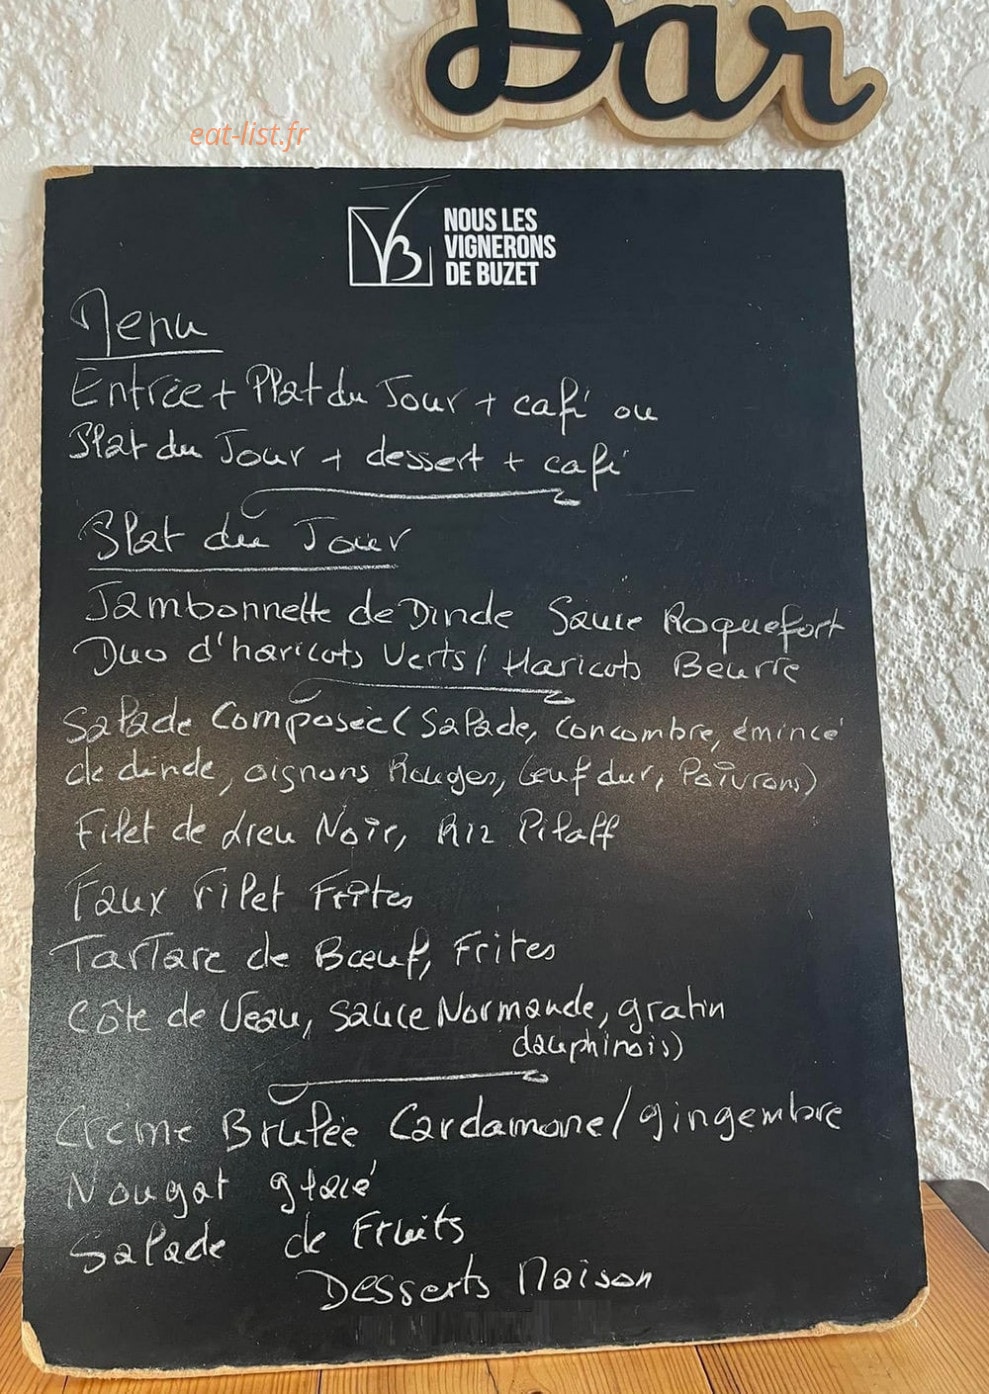 Bar
eat-list.fr
NOUS LES
VIGNERONS
DE BUZET
Menu
Entrée + Plat du Jour + café ou
Plat du Jour + dessert + café
Plat du Jour
Jambonnette de Dinde Sauce Roquefort
Duo d'haricots Verts / Haricots Beurre
Salade Composée (Salade, concombre, émincé
de dinde, oignons Rouges, Oeuf dur, Poivrons)
Filet de Lieu Noir, Riz Pilaff
Faux Filet Frites
Tartare de Bœuf, Frites
Côte de Veau, sauce Normande, gratin
dauphinois)
Crème Brulée Cardamone/gingembre
Nougat glacé
Salade de Fruits
Desserts Maison